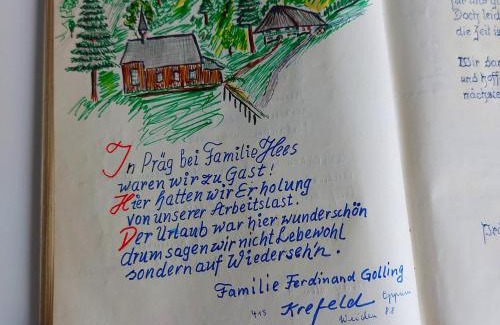 In Präg bei Familie Hees
waren wir zu Gast!
Hier hatten wir Erholung
von unserer Arbeitslast.
Der Urlaub war hier wunderschön
drum sagen wir nicht Lebewohl
sondern auf Wiederseh'n.
Familie Ferdinand Golling
415 Krefeld Oppum
Weiden 88
Doch leid
die Zeit i
Wir dan
und hoff
nächste